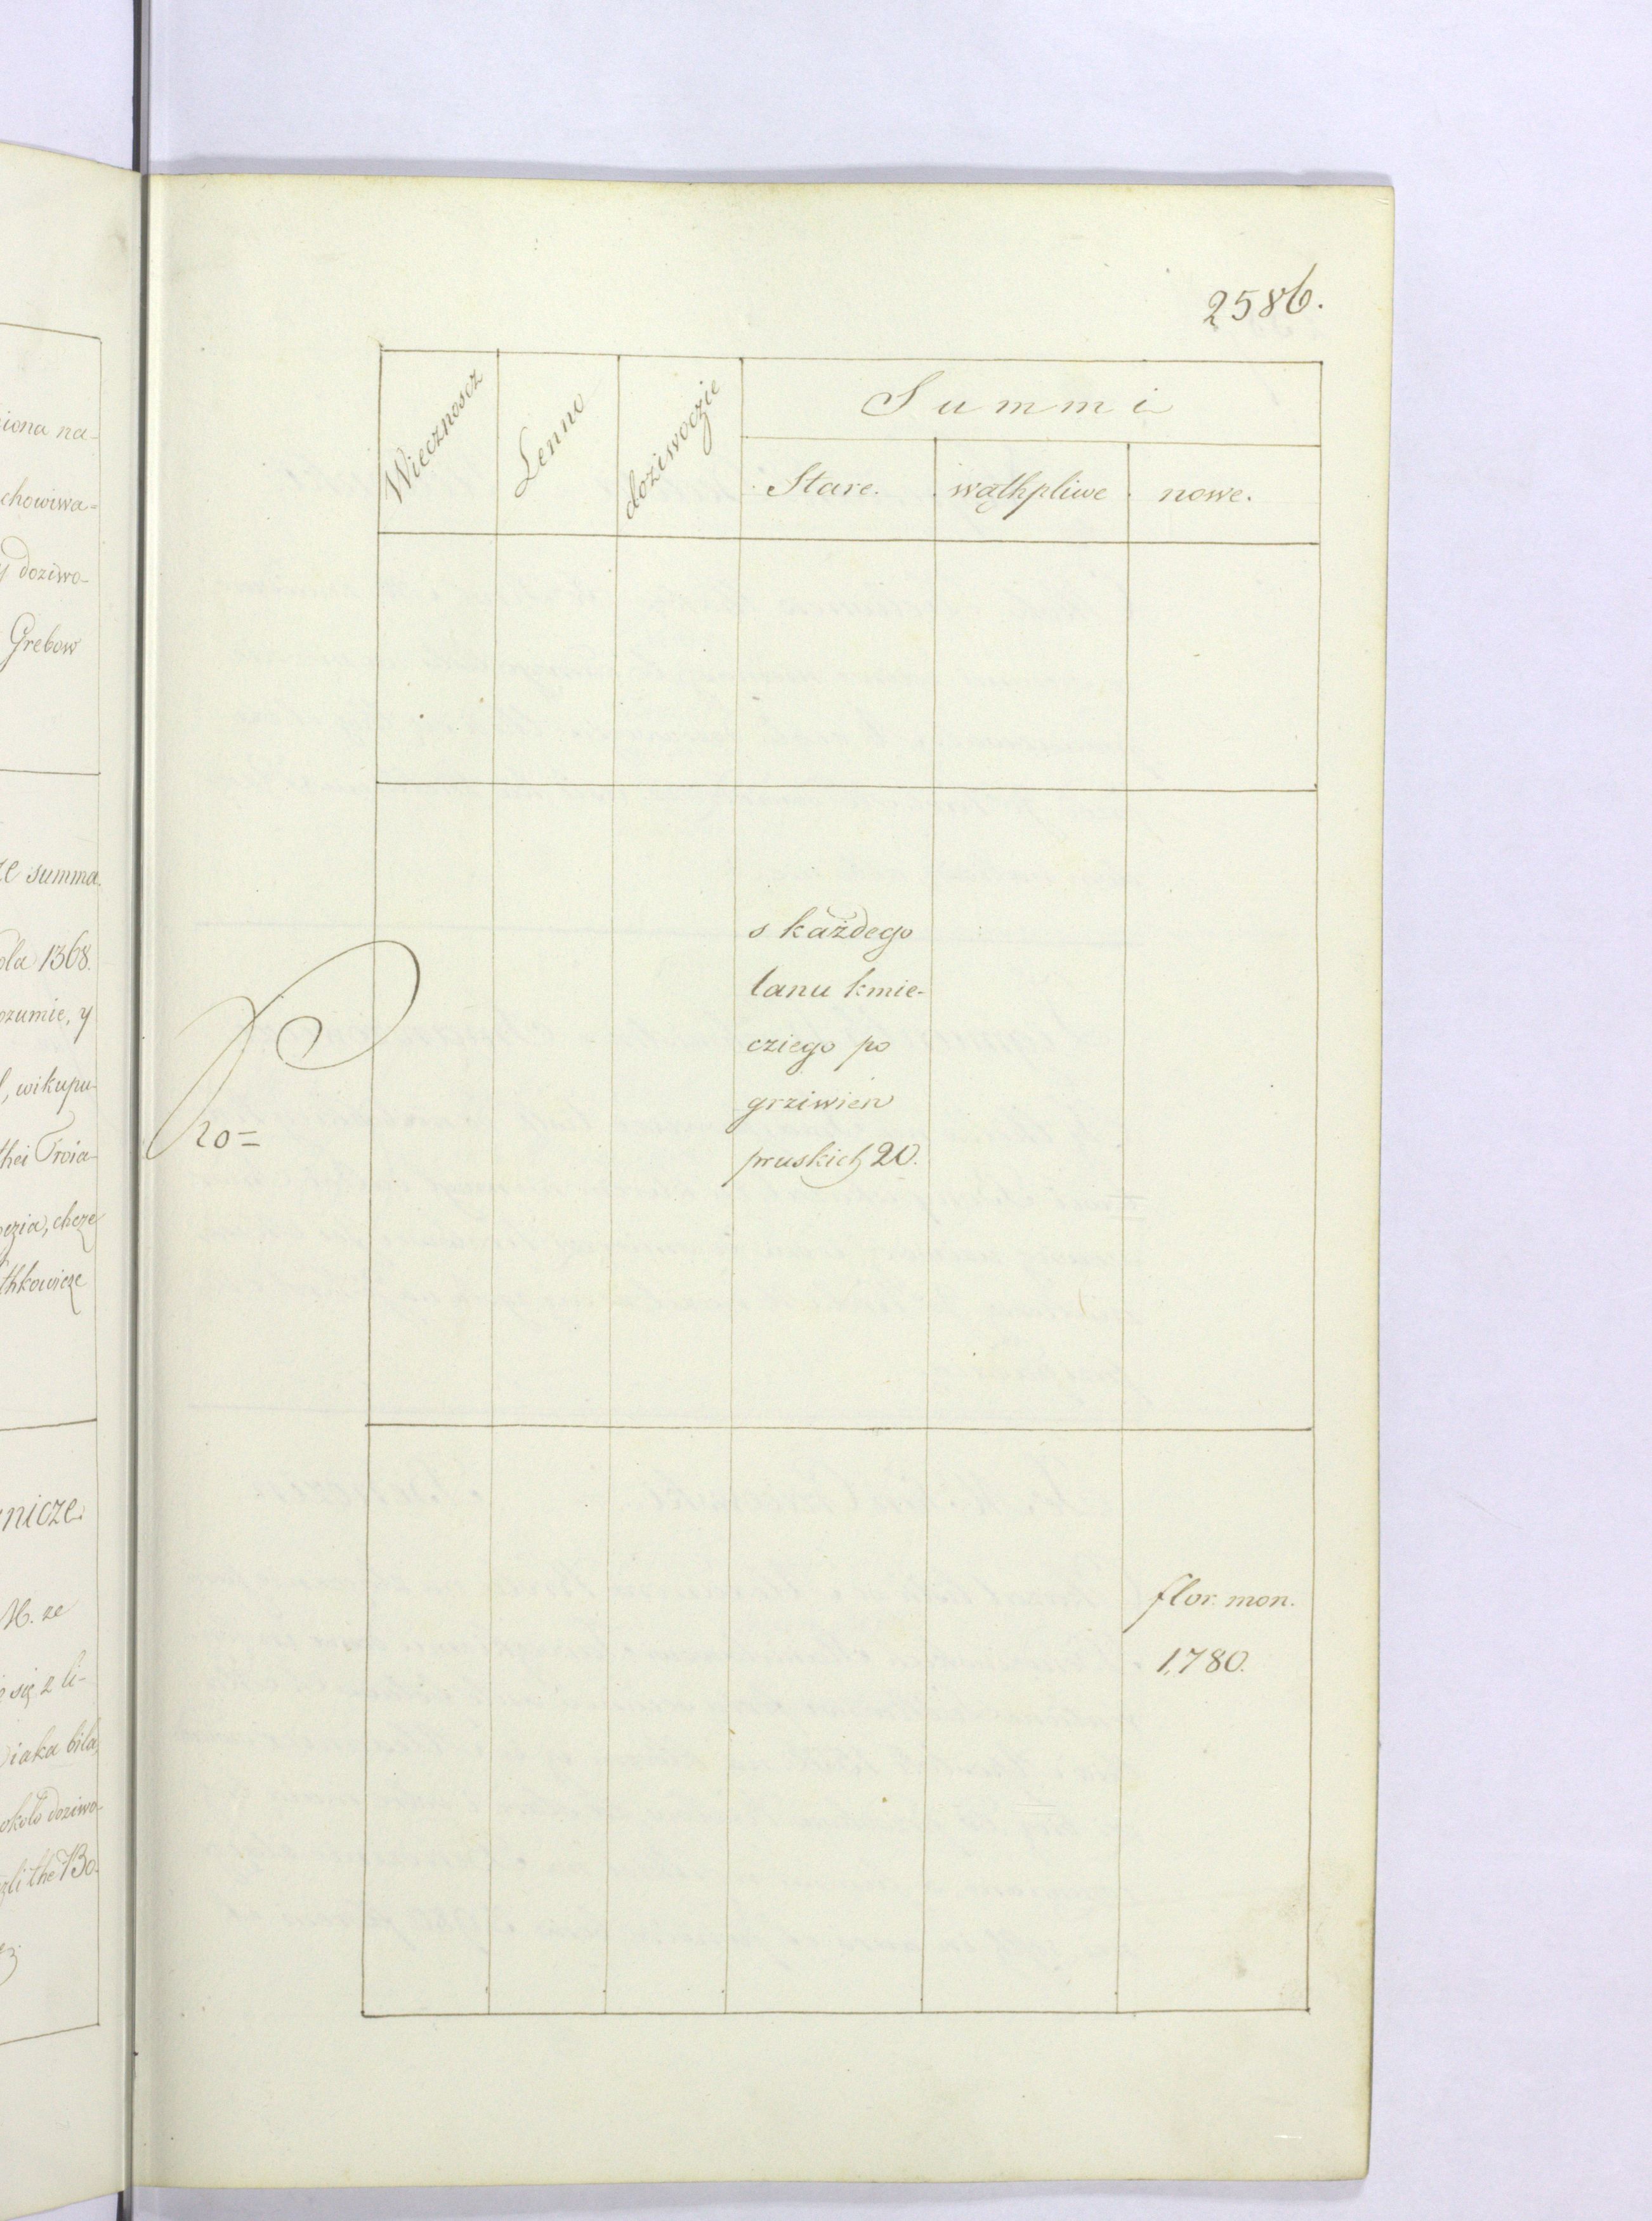 iona na-
chowiwa=
y doziwo-
Grebow
ze summa.
ola 1368.
ozumie, y
, wikupu-
thei Troia-
ezia, chcze
thkowicze
nicze.
M. ze
się z li-
iaka bila,
około doziwo-
zli the 130.
2586.
Wiecznoscz
Lenno
doziwoczie
Summi
Stare.
wąthpliwe
nowe.
s każdego
lanu kmie-
cziego po
grziwien
pruskich 20.
Pro=
flor. mon.
1,780.